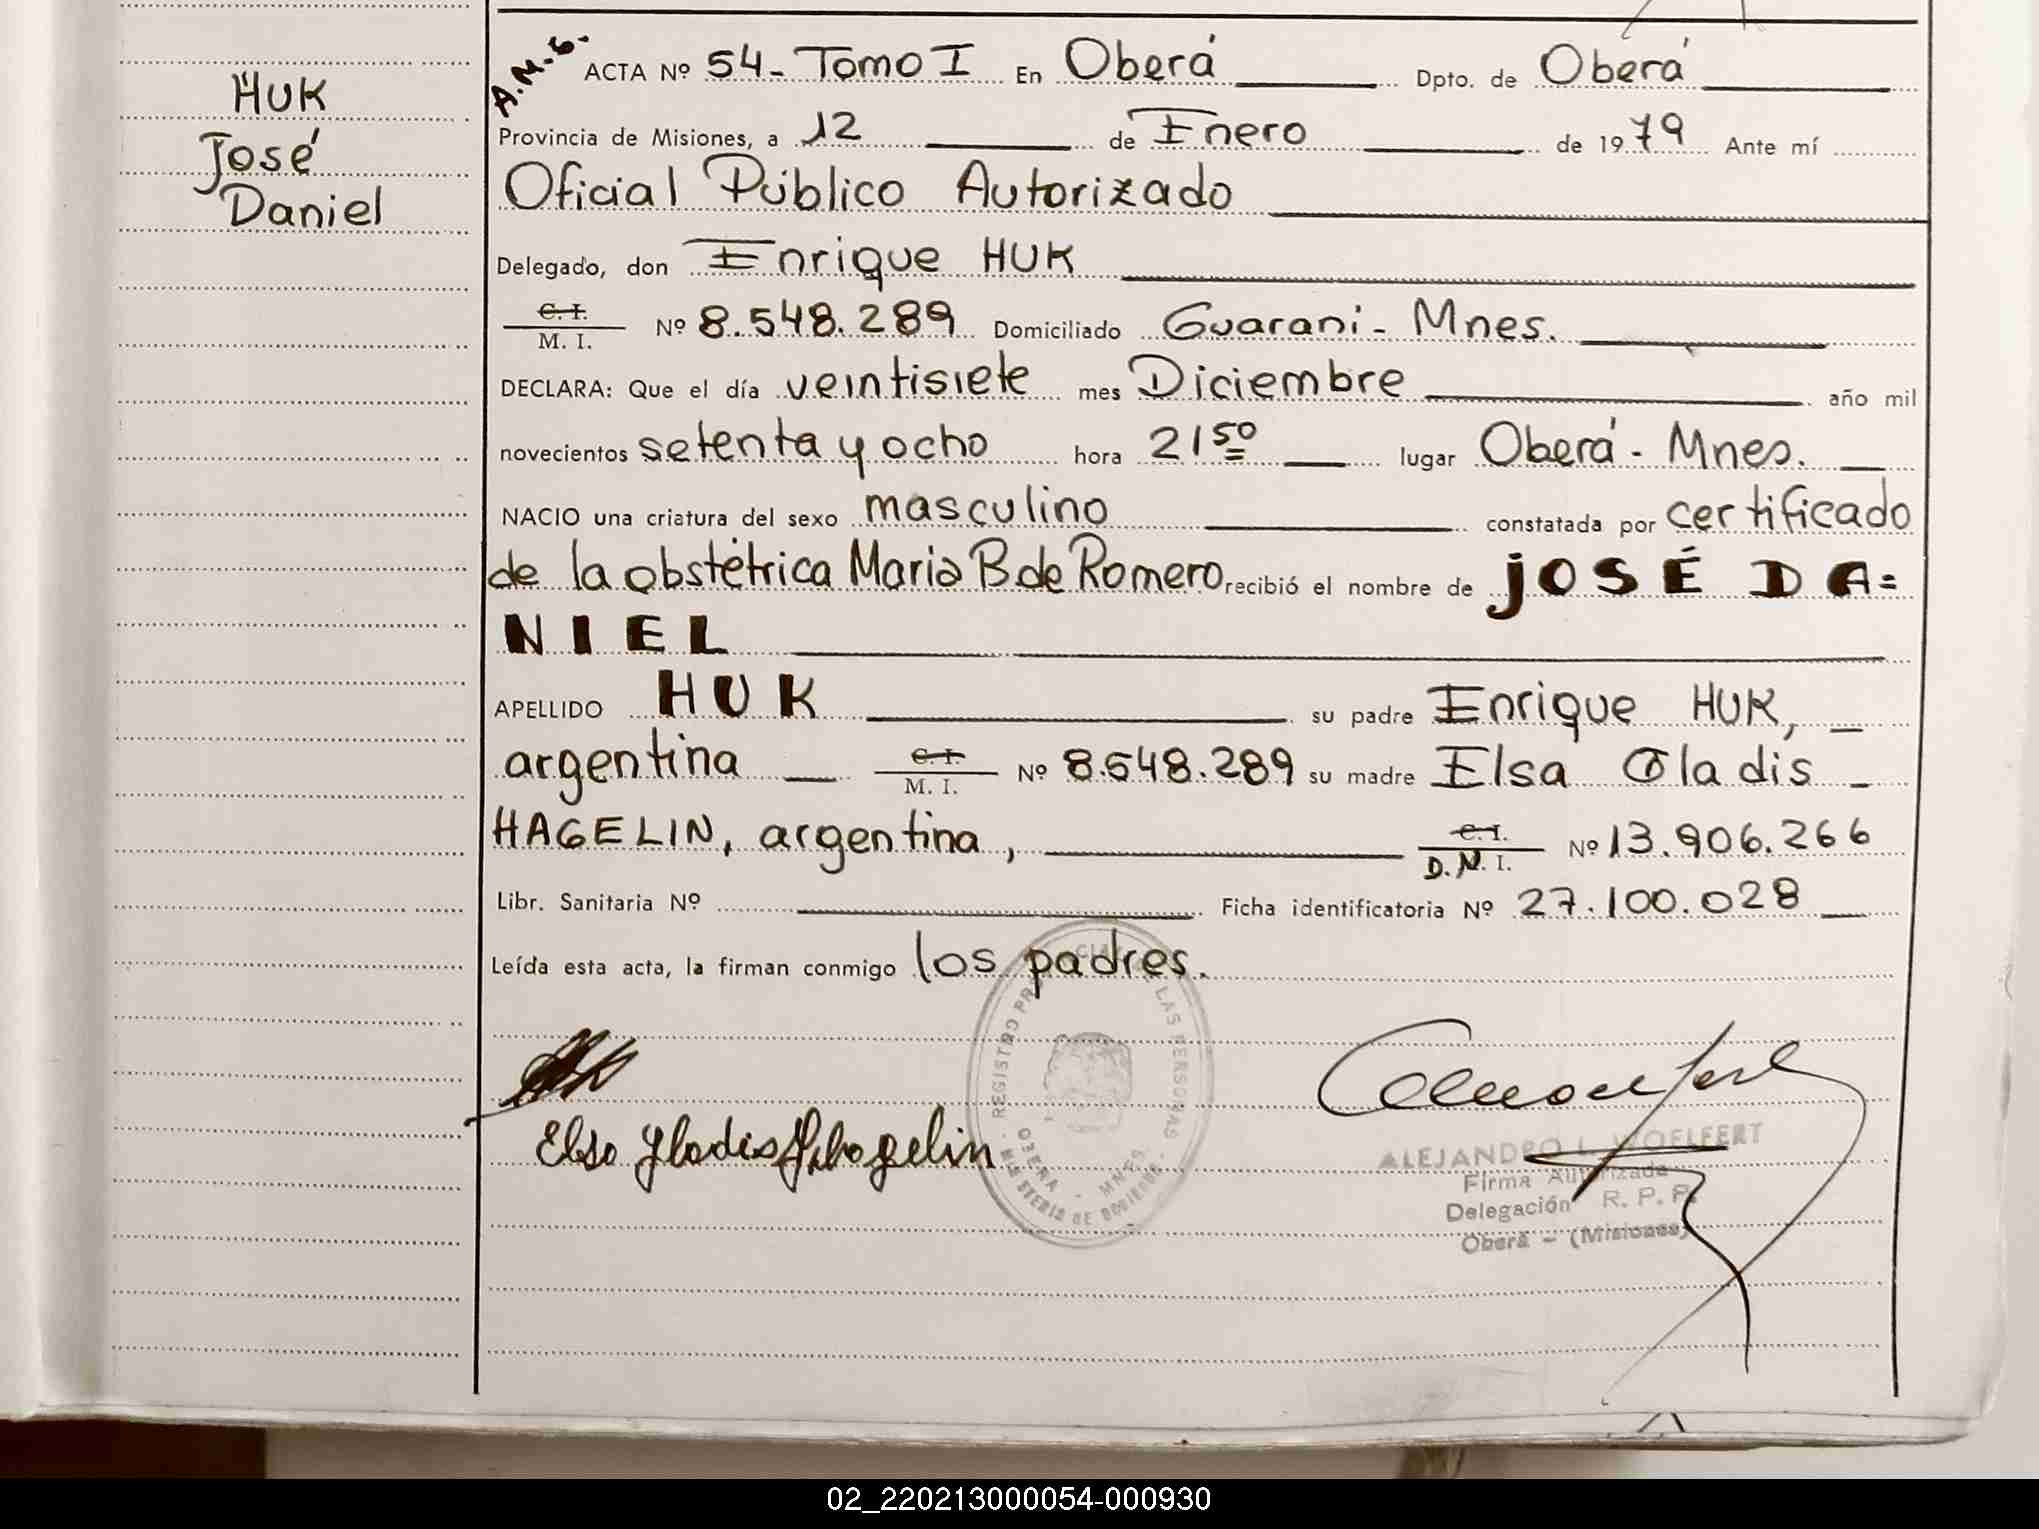 HUK
José
Daniel
A.M.G.
ACTA Nº 54- Tomo I En Oberá Dpto. de Oberá
Provincia de Misiones, a 12 de Enero de 1979 Ante mí
Oficial Público Autorizado
Delegado, don Enrique HUK
C. I.
M. I. Nº 8.548.289 Domiciliado Guarani - Mnes.
DECLARA: Que el día veintisiete mes Diciembre año mil
novecientos setenta y ocho hora 21 50 lugar Oberá - Mnes.
NACIO una criatura del sexo masculino constatada por certificado
de la obstétrica Maria B. de Romero recibió el nombre de JOSÉ DA=
NIEL
APELLIDO HUK su padre Enrique HUK,
argentina C. I. M. I. Nº 8.548.289 su madre Elsa Gladis
HAGELIN, argentina, C. I. D.N.I. Nº 13.906.266
Libr. Sanitaria Nº Ficha identificatoria Nº 27.100.028
Leída esta acta, la firman conmigo los padres.
Elsa Gladis
REGISTRO LAS PERSONAS
OBERA - MNES.
MINISTERIO DE GOBIERNO
ALEJANDRO L. WOELFERT
Firma Autorizada
Delegación R. P. P.
Oberá - (Misiones)
02_220213000054-000930